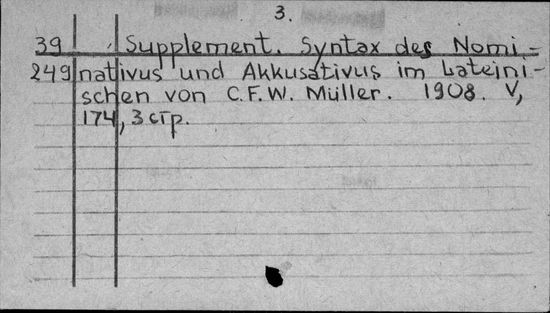 3.
39 Supplement. Syntax des Nomi-
249 nativus und Akkusativus im Lateini-
schen von C.F.W. Müller. 1908. V,
174, 3 стр.